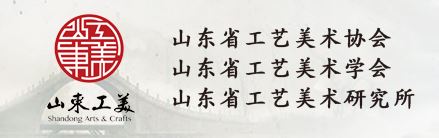 山東工美
山東工美
Shandong Arts & Crafts
山东省工艺美术协会
山东省工艺美术学会
山东省工艺美术研究所